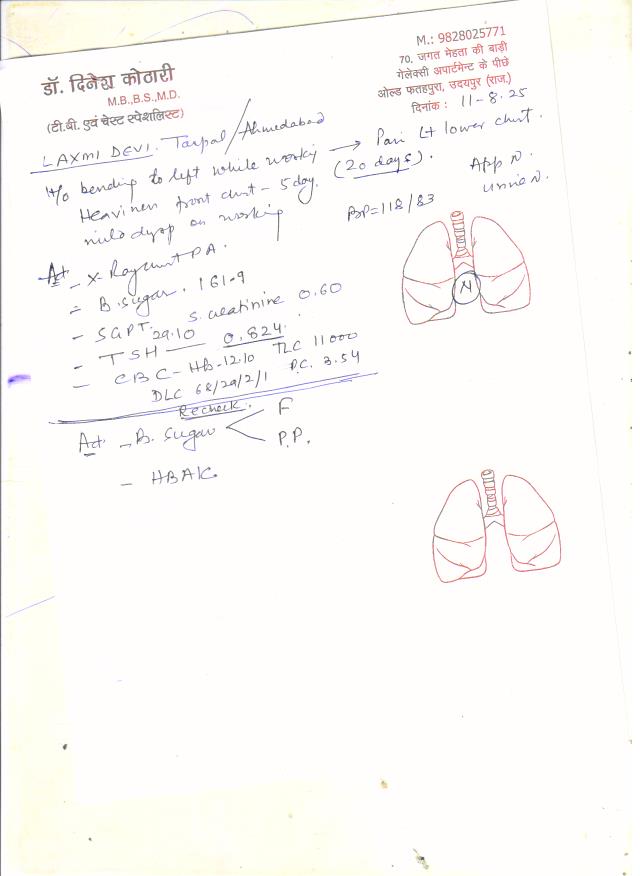 डॉ. दिनेश कोठारी
M.B.,B.S.,M.D.
(टी.बी. एवं चेस्ट स्पेशलिस्ट)
M.: 9828025771
70, जगत मेहता की बाड़ी
गेलेक्सी अपार्टमेन्ट के पीछे
ओल्ड फतहपुरा, उदयपुर (राज.)
दिनांक : 11-8-25
LAXMI DEVI. Tarpal/Ahmedabad
H/o bending to left while working → Pain Lt lower chest.
(20 days).
Heaviness front chest - 5 day.
mild dysp on working
App N.
Urine N.
BP = 118/83
N
- X-Ray chest PA.
- B. sugar. 161-9
- SGPT. 29.10 S. creatinine 0.60
- TSH — 0.824.
- CBC - Hb-12.10 TLC 11000
DLC 68/29/2/1 P.C. 3.54
Recheck.
Ad. - B. Sugar F
P.P.
- HBA1C